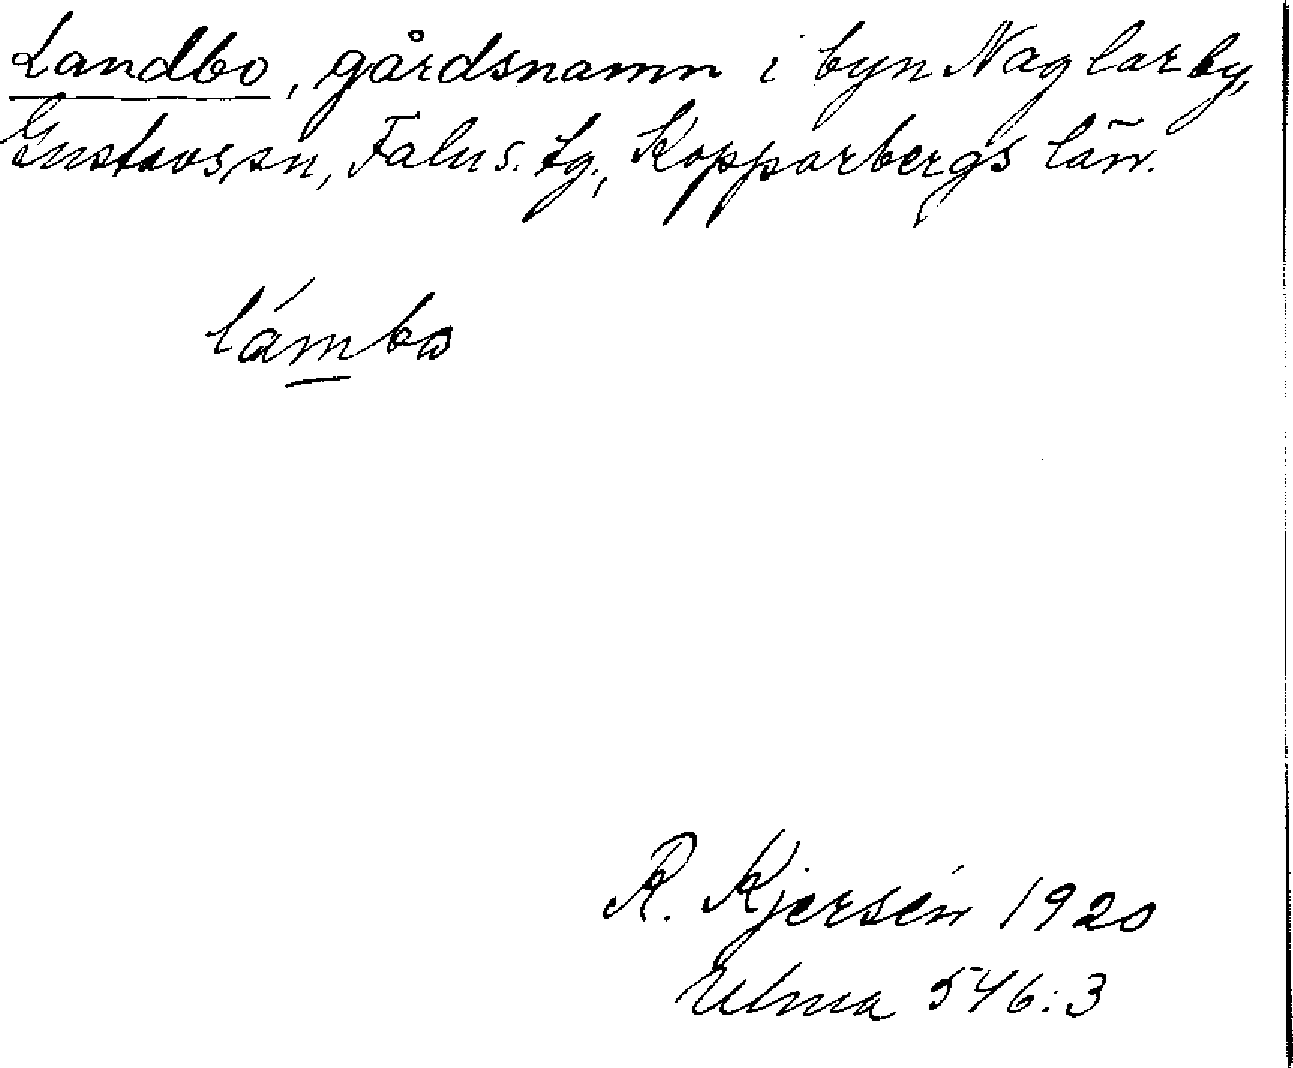 Landbo, gårdsnamn i byn Naglarby,
Gustavs sn, Falu s. tg., Kopparbergs län.
lámbo
R. Kjersén 1920
Ulma 546:3